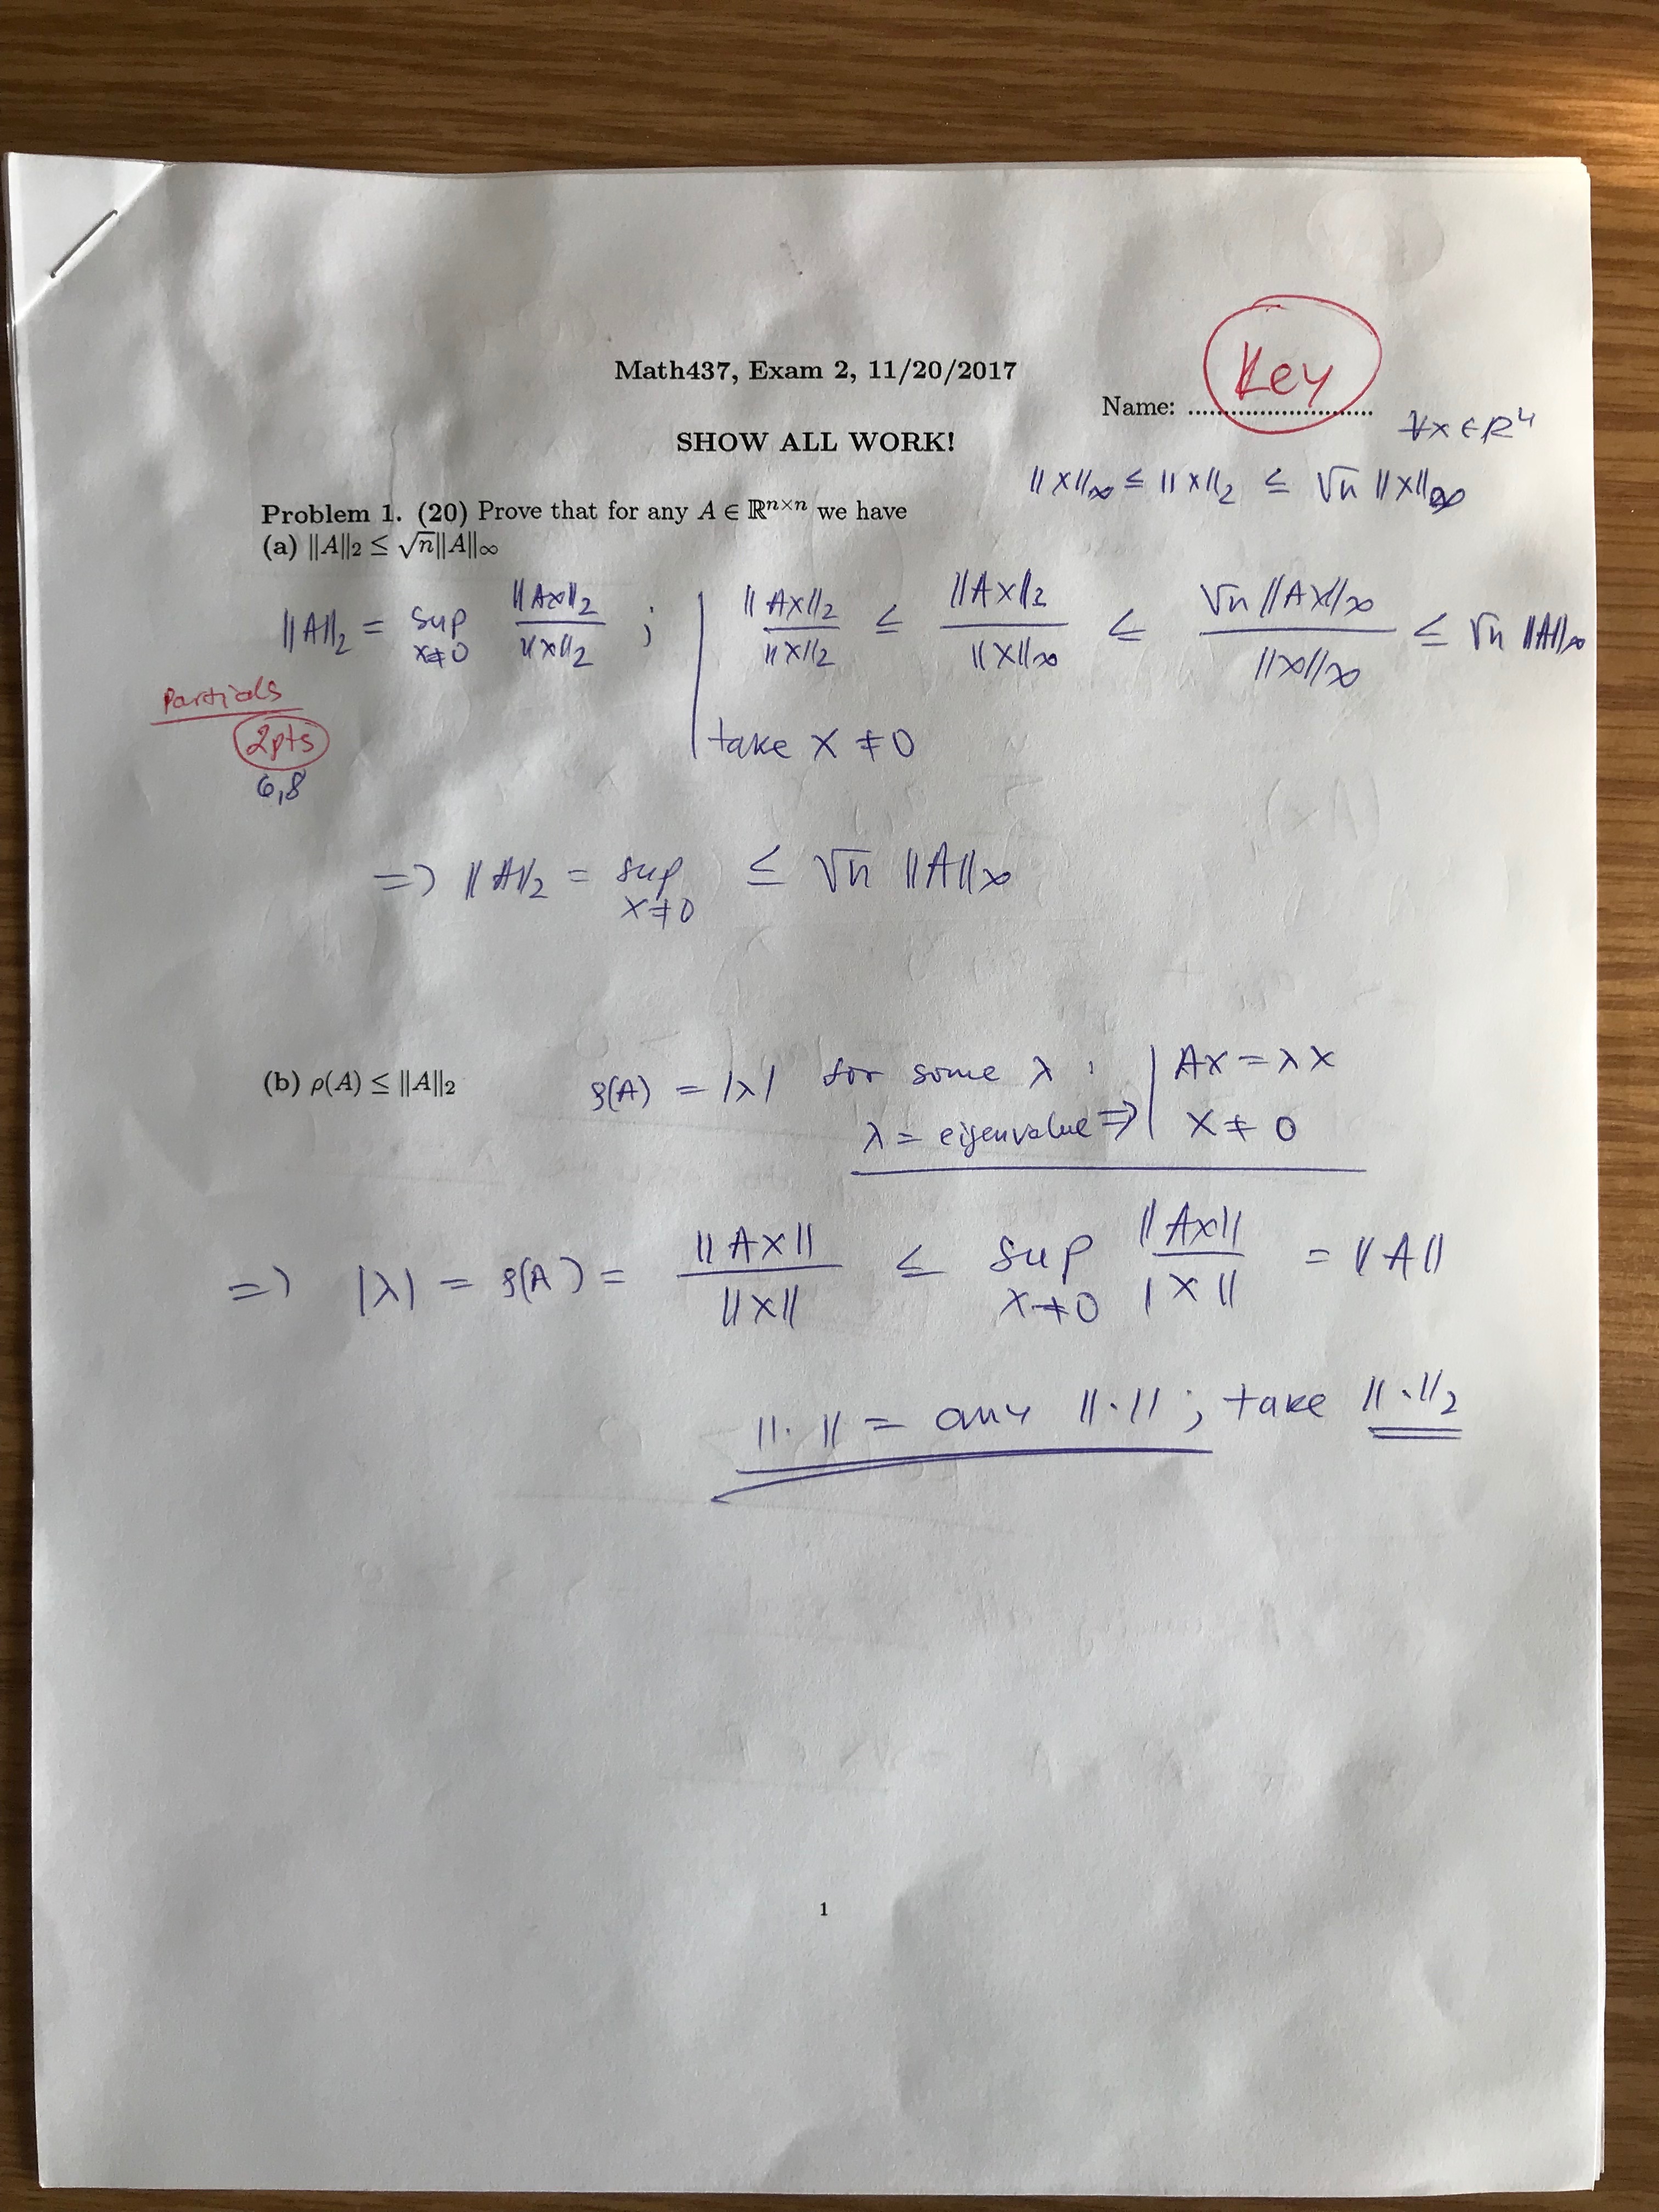 Math437, Exam 2, 11/20/2017
Key
Name: ..............................
∀x ∈ R^n
SHOW ALL WORK!
||x||_∞ ≤ ||x||_2 ≤ √n ||x||_∞
Problem 1. (20) Prove that for any A ∈ ℝ^{n×n} we have
(a) ||A||_2 ≤ √n||A||_∞
||A||_2 = sup_{x≠0} ||Ax||_2 / ||x||_2 ; | ||Ax||_2 / ||x||_2 ≤ ||Ax||_2 / ||x||_∞ ≤ √n ||Ax||_∞ / ||x||_∞ ≤ √n ||A||_∞
Partials
2pts
take x ≠ 0
6,8
=> ||A||_2 = sup_{x≠0} ≤ √n ||A||_∞
(b) ρ(A) ≤ ||A||_2
ρ(A) = |λ| for some λ : | Ax = λx
λ = eigenvalue => | x ≠ 0
=> |λ| = ρ(A) = ||Ax|| / ||x|| ≤ sup_{x≠0} ||Ax|| / ||x|| = ||A||
||·|| = any ||·|| ; take ||·||_2
1